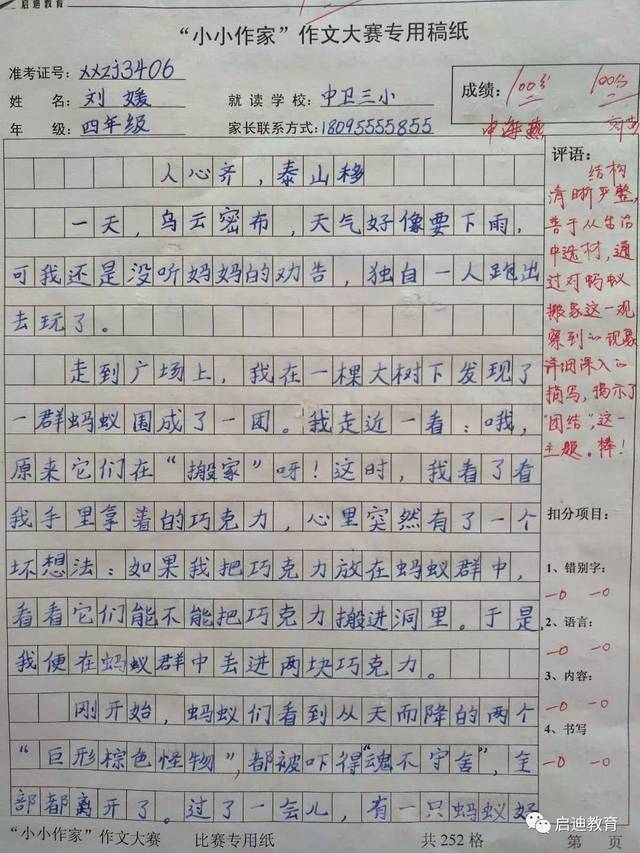 启迪教育
“小小作家”作文大赛专用稿纸
准考证号:xxzj3406
姓 名:刘媛 就读学校:中卫三小
年 级:四年级 家长联系方式:18095555855
成绩:100分 100分
申海燕
人心齐,泰山移
一天,乌云密布,天气好像要下雨,
可我还是没听妈妈的劝告,独自一人跑出
去玩了。
走到广场上,我在一棵大树下发现了
一群蚂蚁围成了一团。我走近一看:哦,
原来它们在“搬家”呀!这时,我看了看
我手里拿着的巧克力,心里突然有了一个
坏想法:如果我把巧克力放在蚂蚁群中,
看看它们能不能把巧克力搬进洞里。于是,
我便在蚂蚁群中丢进两块巧克力。
刚开始,蚂蚁们看到从天而降的两个
“巨形棕色怪物”,都被吓得“魂不守舍”,全
部都离开了。过了一会儿,有一只蚂蚁好
评语:
结构
清晰严整,
善于从生活
中选材,通
过对蚂蚁
搬家这一观
察到的现象
详细深入的
描写,揭示了
“团结”这一
主题。棒!
扣分项目:
1、错别字:
-0 -0
2、语言:
-0 -0
3、内容:
-0 -0
4、书写
-0 -0
“小小作家”作文大赛 比赛专用纸 共252格 第 页
启迪教育